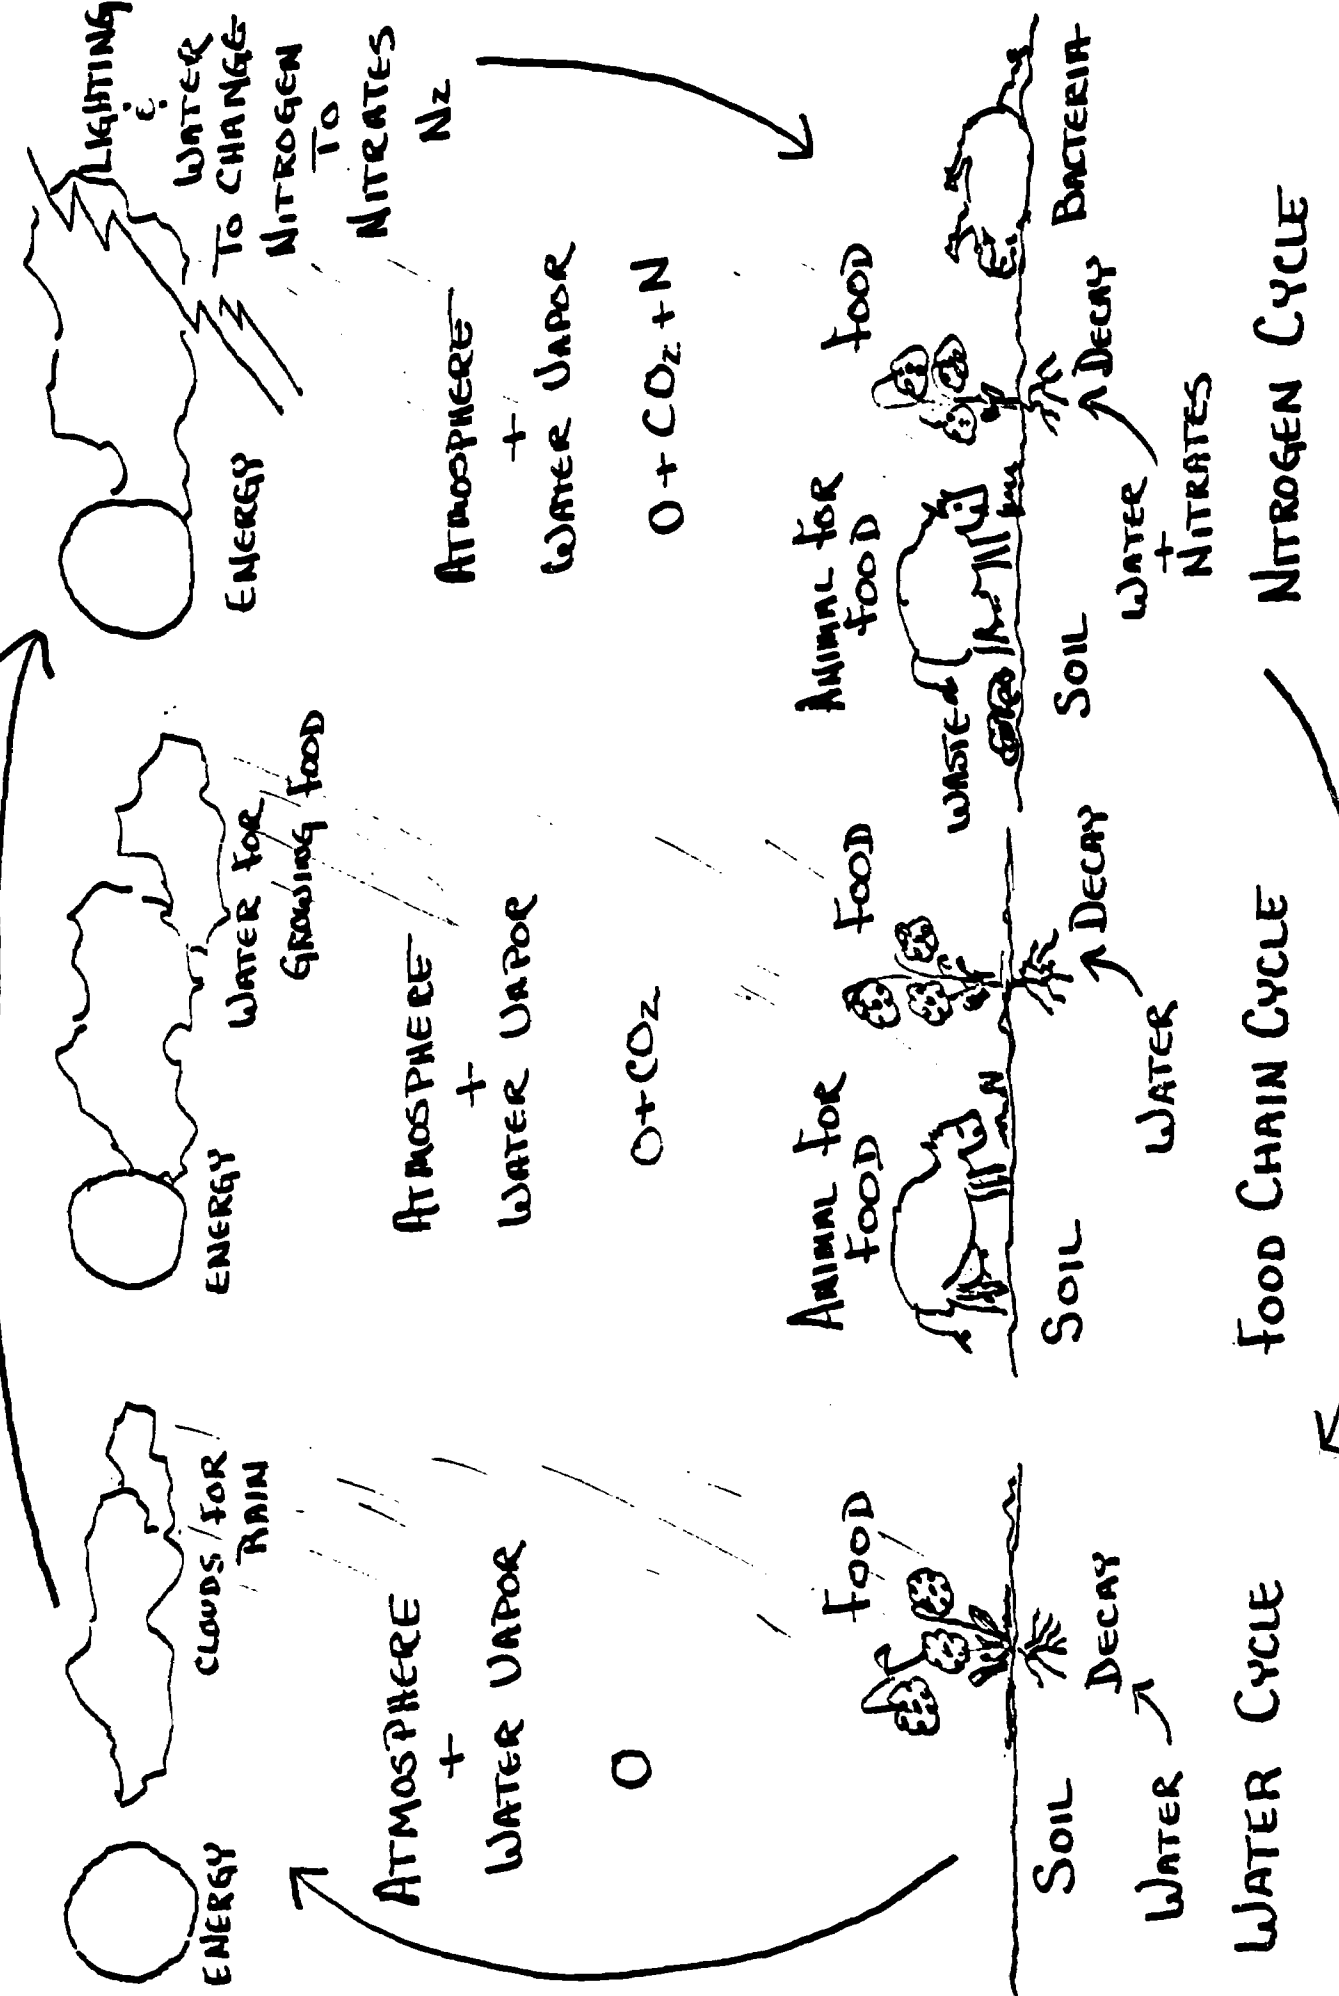 ENERGY
CLOUDS FOR
RAIN
ATMOSPHERE
+
WATER VAPOR
O
FOOD
SOIL
DECAY
WATER
WATER CYCLE
ENERGY
WATER FOR
GROWING FOOD
ATMOSPHERE
+
WATER VAPOR
O+CO2
ANIMAL FOR
FOOD
FOOD
SOIL
DECAY
WATER
FOOD CHAIN CYCLE
LIGHTING
&
WATER
TO CHANGE
NITROGEN
TO
NITRATES
N2
ENERGY
ATMOSPHERE
+
WATER VAPOR
O+CO2+N
ANIMAL FOR
FOOD
FOOD
WASTE
SOIL
DECAY
BACTERIA
WATER
+
NITRATES
NITROGEN CYCLE